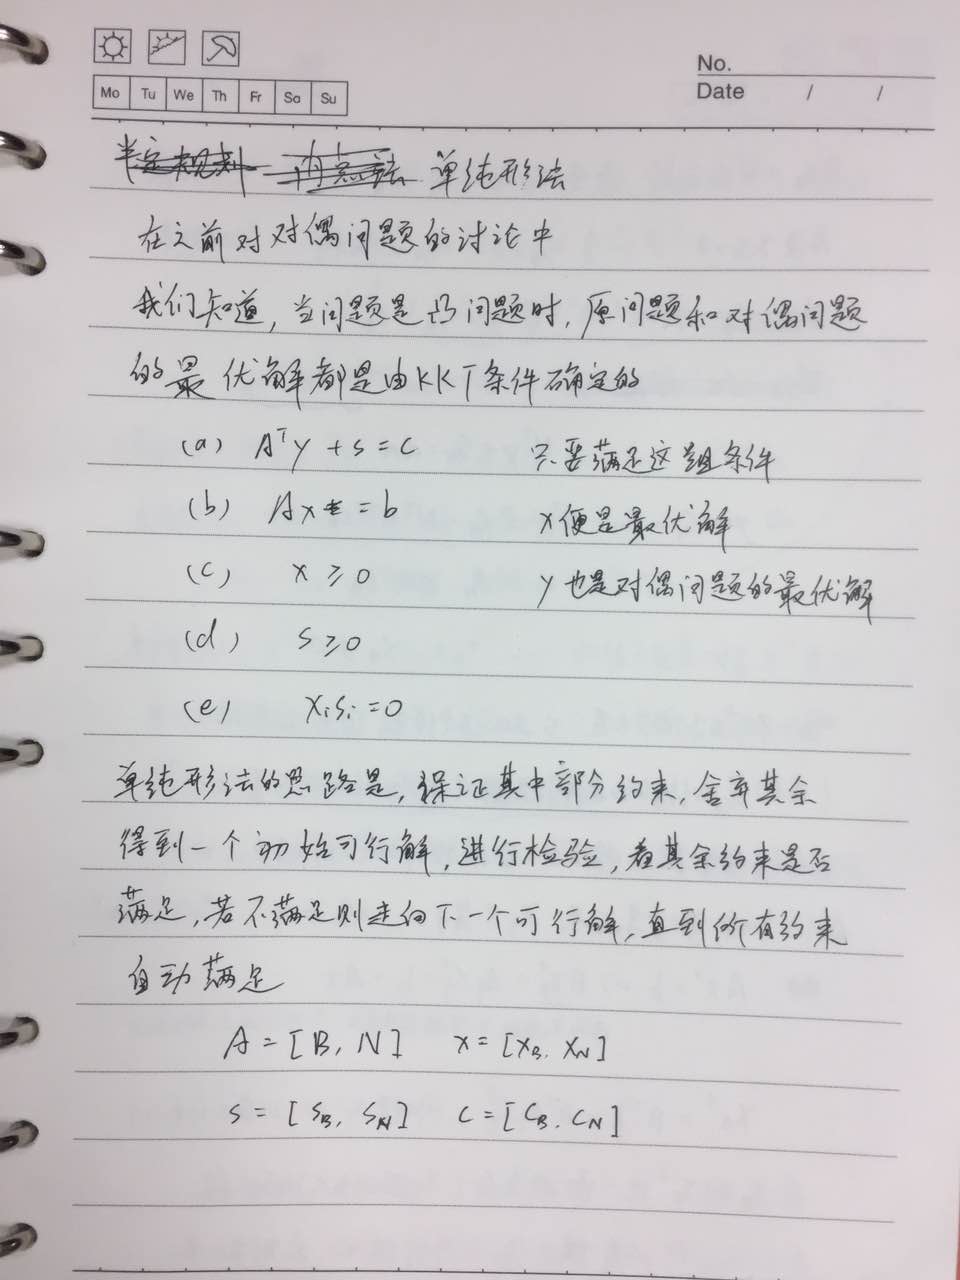 No.
Mo Tu We Th Fr Sa Su
Date / /
判定规则 内点法 单纯形法
在之前对对偶问题的讨论中
我们知道,当问题是凸问题时,原问题和对偶问题
的最优解都是由KKT条件确定的
(a) Aᵀy + s = c 只要满足这组条件
(b) Ax = b x便是最优解
(c) x ≥ 0 y也是对偶问题的最优解
(d) s ≥ 0
(e) xᵢsᵢ = 0
单纯形法的思路是,保证其中部分约束,舍弃其余
得到一个初始可行解,进行检验,看其余约束是否
满足,若不满足则走向下一个可行解,直到所有约束
自动满足
A = [B, N] x = [x_B, x_N]
s = [s_B, s_N] c = [c_B, c_N]